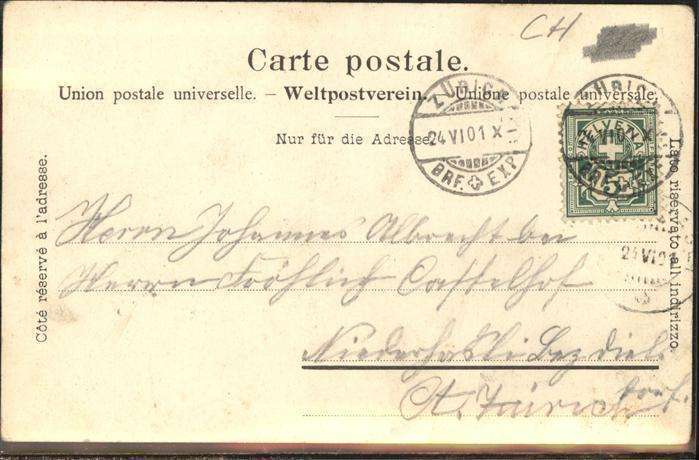 CH
Carte postale.
Union postale universelle. – Weltpostverein. – Unione postale universale.
Nur für die Adresse
ZÜRICH
24 VI 01 X
BRF. EXP.
HELVETIA
5
Côté réservé à l'adresse.
Lato riservato all'indirizzo.
24 VI
Herrn Johannes Albrecht bei
Herrn Fröhlich Castelhof
Niederhasli Bez Diels
dorf.
Kt. Zürich